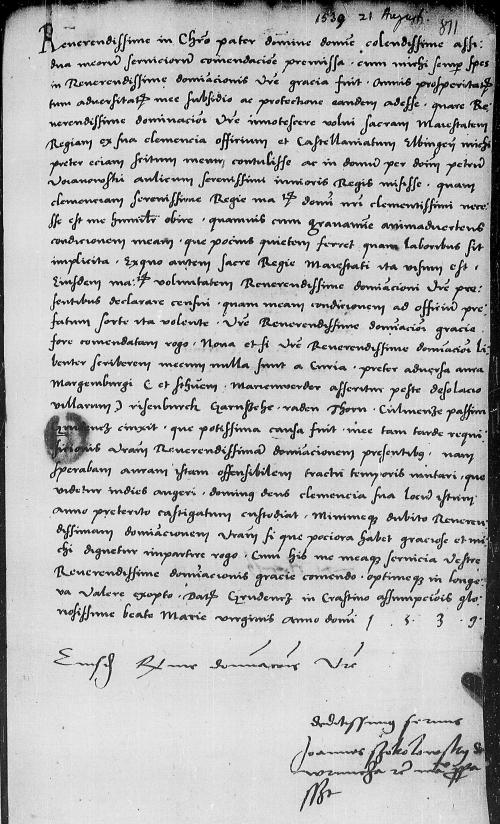 1539 21 Augusti 811
Reverendissime in Chro pater domine domine colendissime assi-
dua meorum serviciorum comendacione premissa. cum michi semper spes
in Reverendissime dominacionis Vre gracia fuit. Omnis prosperitatis
tum adversitatis mee subsidio ac protectione eandem adesse. quare Re-
verendissime dominacioni Vre innotescere volui sacram Maiestatem
Regiam ex sua clemencia officium et Castellaniatum Elbingen michi
preter eciam scitum meum contulisse ac in domum per dom petrum
Voianowski aulicum serenissimi iunioris Regis misisse. quam
clemenciam serenissime Regie ma domini nri clementissimi neces-
se est me humiliter obire. quamvis cum gravamine animadvertens
condicionem meam. que pocius quietem ferret quam laboribus sit
implicita. Exquo autem sacre Regie Maiestati ita visum est.
Eiusdem ma voluntatem Reverendissime dominacioni Vre pre-
sentibus declarare censui. quam meam condicionem ad officium pre-
fatum sorte ita volente. Vre Reverendissime dominacionis gracie
fore comendatam rogo. Nova etsi Vre Reverendissime dominacioni li-
benter scriberem mecum nulla sunt a Curia. preter adversa aura
Margenburgi et Marienwerder asseritur peste desolacio
villarum risenburch Garnsehe. raden Thorn. Culmense passim
Grudencz cinxit. que potissima causa fuit. mee tam tarde requi-
sicionis vram Reverendissimam dominacionem presentibus. nam
sperabam auram istam offensibilem tractu temporis mutari. que
videtur indies augeri. dominus deus clemencia sua locum istum
anno preterito castigatum custodiat. Minimeque dubito Reveren-
dissimam dominacionem vram si que pociora habet graciose et mi-
chi dignetur impartire rogo. Cum his me meaque servicia Vestre
Reverendissime dominacionis gracie comendo. optimeque in longe-
va valere exopto. Dat Grudencz in Crastino assumpcionis glo-
riosissime beate Marie virginis anno domini 1.5.3.9.
Eiusdem Rme dominacionis Vre
deditissimus servus
Joannes Szokolowsky de
wrancza